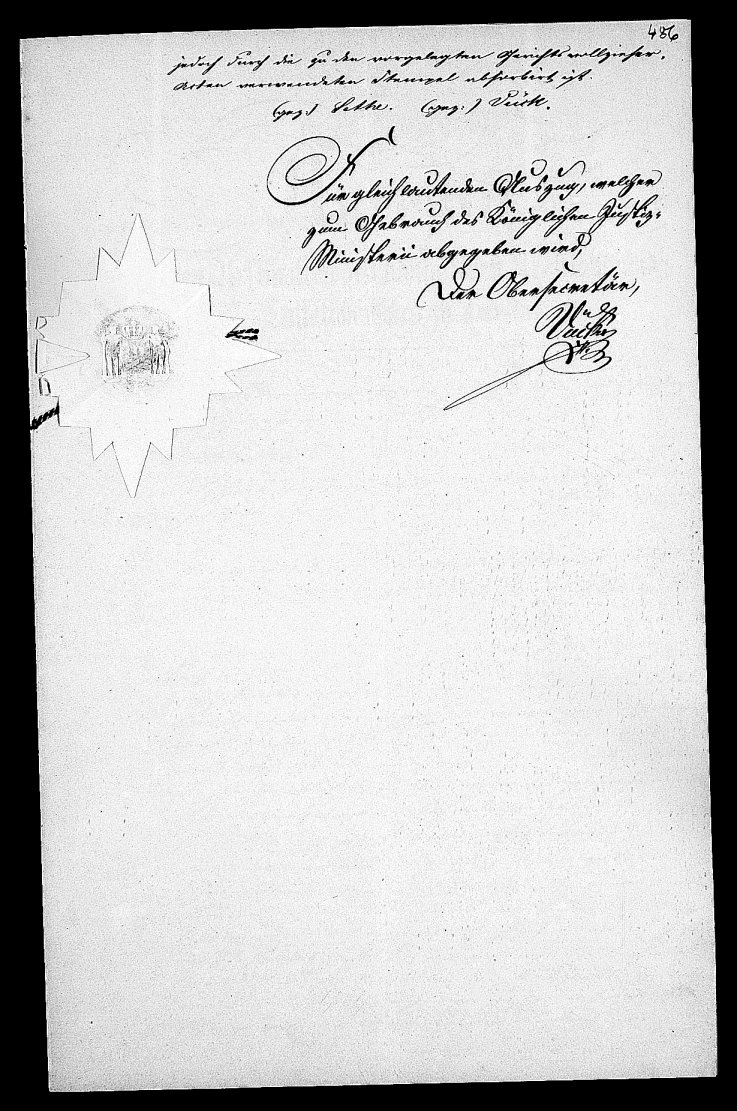 486
jedoch durch die zu den vorgelegten Gerichtsvollzieher-
Acten verwendeten Stempel absorbirt ist.
(gez:) Sethe. (gez:)
Für gleichlautenden Auszug, welcher
zum Gebrauch des Königlichen Justiz-
Ministerii abgegeben wird,
Der Obersecretär,